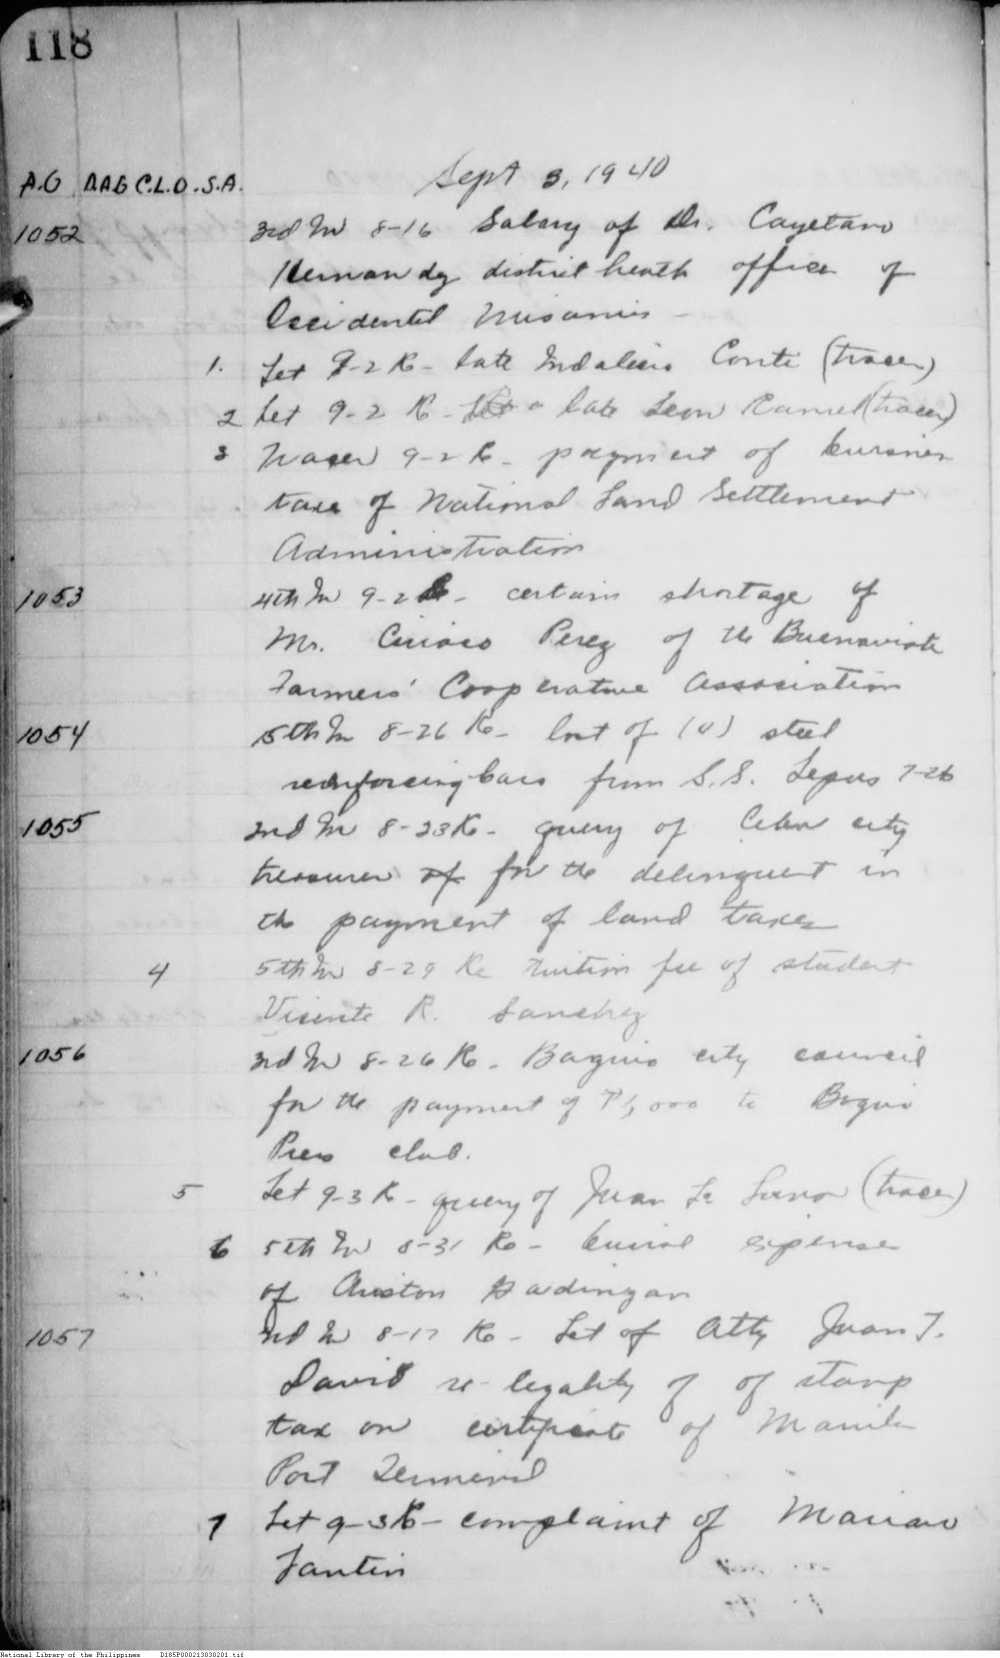 118
Sept 3, 1940
A.G D.A.G C.L.O. S.A.
1052 3rd In 8-16 Salary of Dr. Cayetano
Hernandez district health officer of
Occidental Misamis -
1. Let 9-2 Re - late Indalecio Conti (tracer)
2 Let 9-2 Re - late Leon (tracer)
3 Tracer 9-2 Re - payment of business
taxes of National Land Settlement
Administration
1053 4th In 9-2 Re - certain shortage of
Mr. Ciriaco Perez of the Buenavista
Farmers' Cooperative Association
1054 5th In 8-26 Re - lost of (4) steel
reinforcing bars from S.S. Lepus 7-26
1055 2nd In 8-23 Re - query of Cebu city
treasurer of for the delinquent in
the payment of land taxes
4 5th In 8-29 Re Tuition fee of student
Vicente R. Sanchez
1056 3rd In 8-26 Re - Baguio city council
for the payment of ₱1,000 to Baguio
Press club.
5 Let 9-3 Re - query of Juan (tracer)
6 5th In 8-31 Re - burial expense
of Ariston
1057 2nd In 8-17 Re - Let of Atty Juan T.
David re - legality of of stamp
tax on certificate of Manila
Port Terminal
7 Let 9-3 Re - complaint of Mariano
Fantin
National Library of the Philippines D185P000213030201.tif